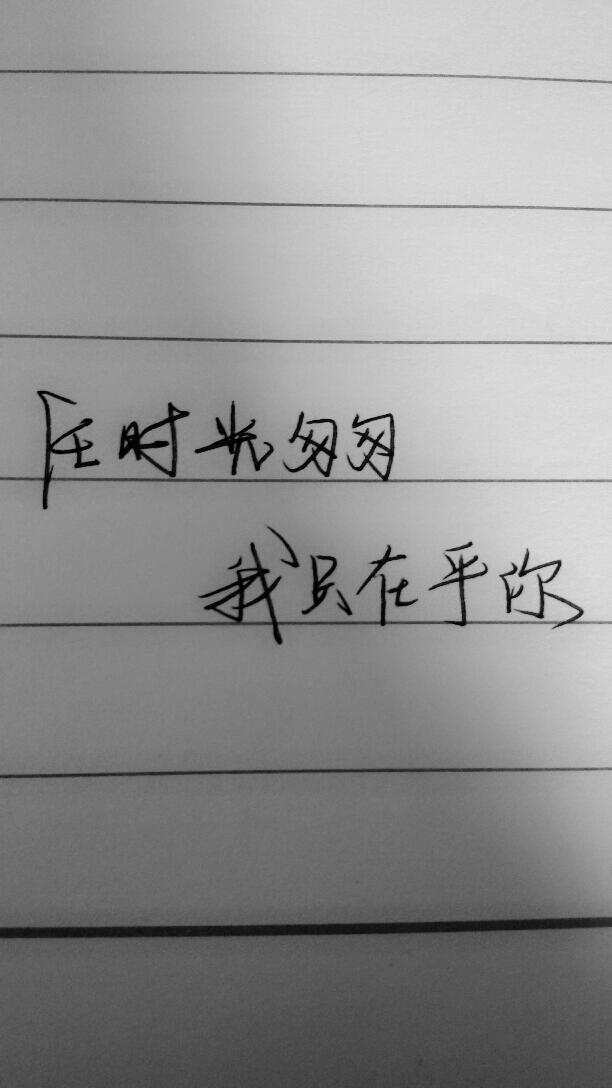 「任时光匆匆
我只在乎你」